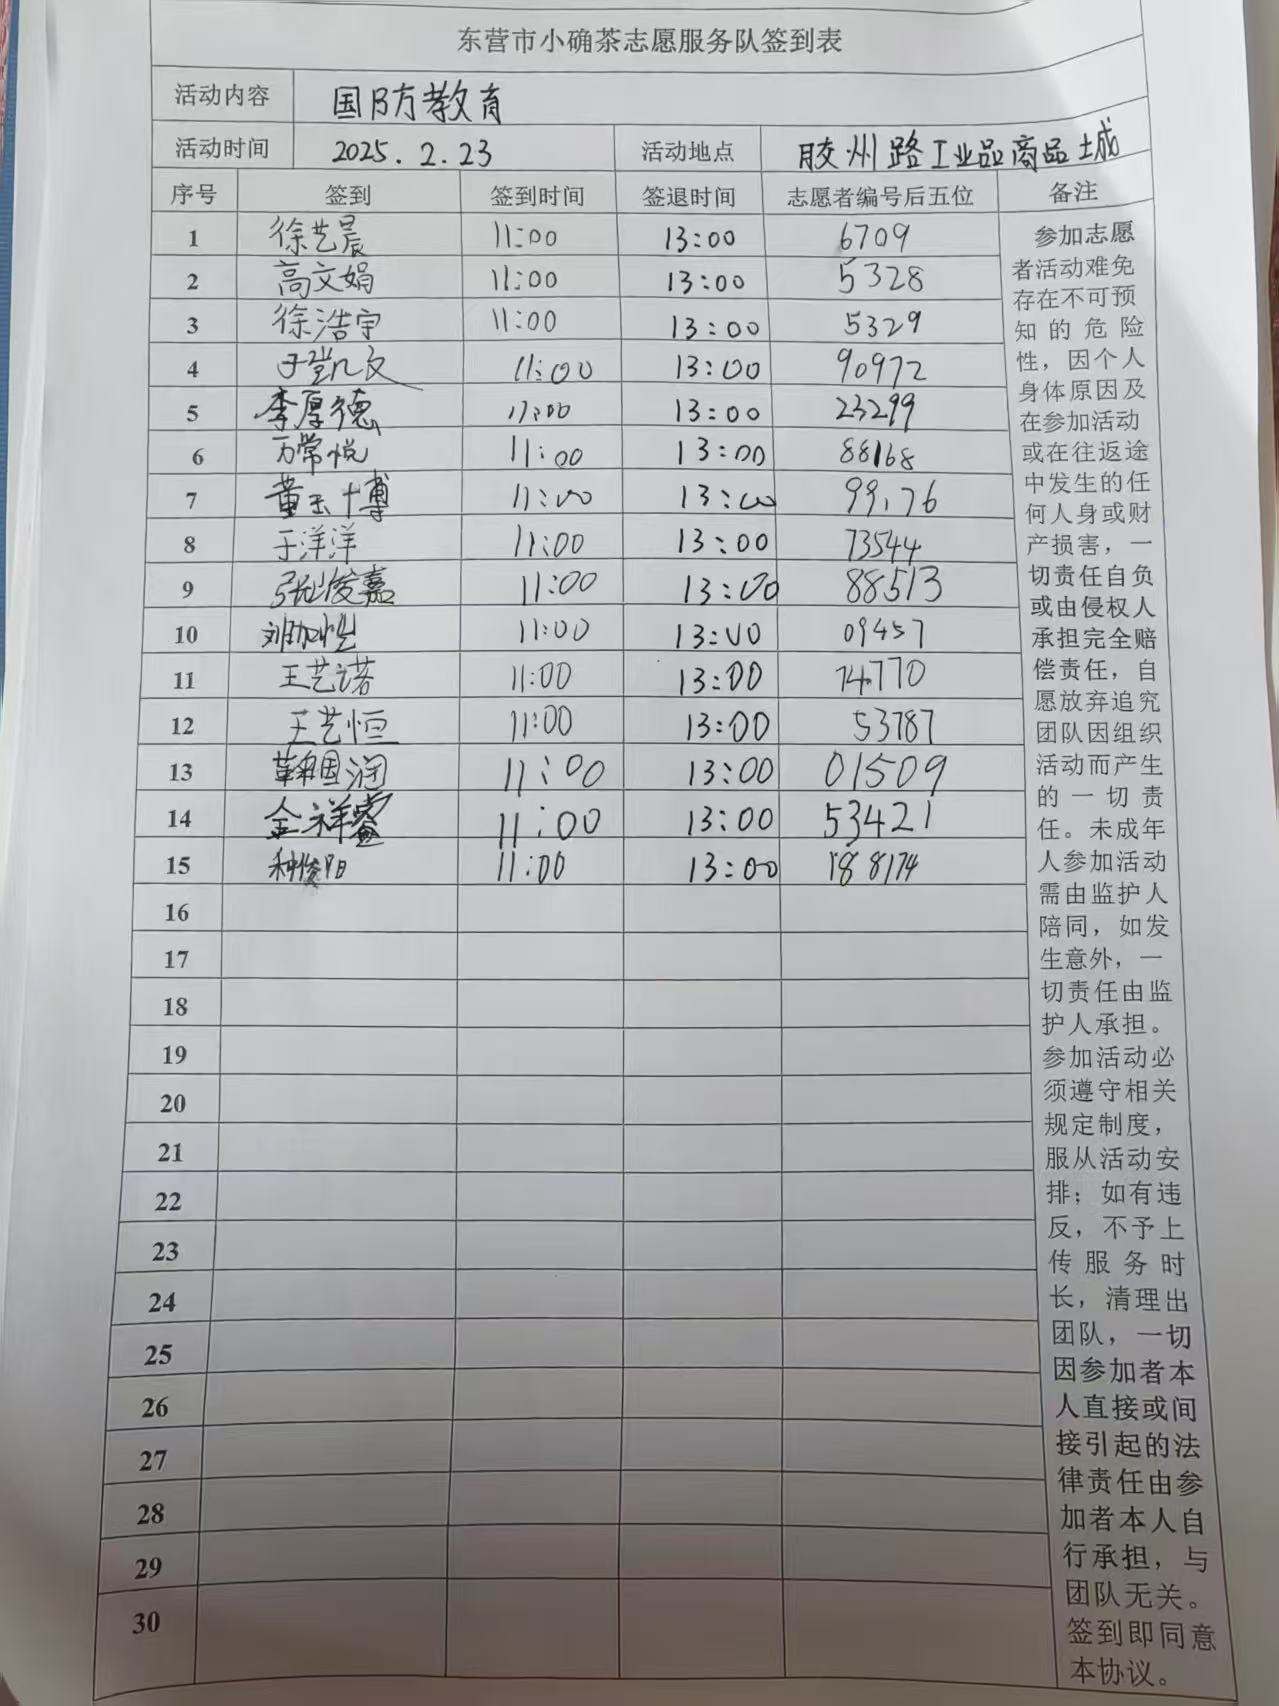 东营市小确茶志愿服务队签到表
活动内容 国防教育
活动时间 2025.2.23 活动地点 胶州路工业品商品城
序号 签到 签到时间 签退时间 志愿者编号后五位 备注
1 徐艺晨 11:00 13:00 6709
2 高文娟 11:00 13:00 5328
3 徐浩宇 11:00 13:00 5329
4 于凯文 11:00 13:00 90972
5 李厚德 11:00 13:00 23299
6 万常悦 11:00 13:00 88168
7 董玉博 11:00 13:00 99176
8 于洋洋 11:00 13:00 73544
9 张俊嘉 11:00 13:00 88513
10 11:00 13:00 09457
11 王艺诺 11:00 13:00 74770
12 王艺恒 11:00 13:00 53787
13 11:00 13:00 01509
14 金祥睿 11:00 13:00 53421
15 种俊阳 11:00 13:00 188174
16
17
18
19
20
21
22
23
24
25
26
27
28
29
30
参加志愿
者活动难免
存在不可预
知的危险
性，因个人
身体原因及
在参加活动
或在往返途
中发生的任
何人身或财
产损害，一
切责任自负
或由侵权人
承担完全赔
偿责任，自
愿放弃追究
团队因组织
活动而产生
的一切责
任。未成年
人参加活动
需由监护人
陪同，如发
生意外，一
切责任由监
护人承担。
参加活动必
须遵守相关
规定制度，
服从活动安
排；如有违
反，不予上
传服务时
长，清理出
团队，一切
因参加者本
人直接或间
接引起的法
律责任由参
加者本人自
行承担，与
团队无关。
签到即同意
本协议。